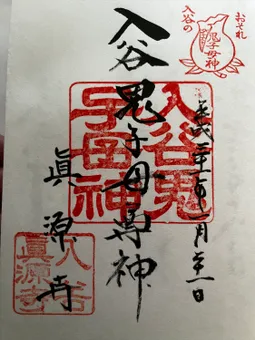 おそれ
入谷の
鬼子母神
平成二十一年一月二十一日
入谷鬼子母尊神
入谷鬼
子母神
眞源寺
入谷
眞源寺